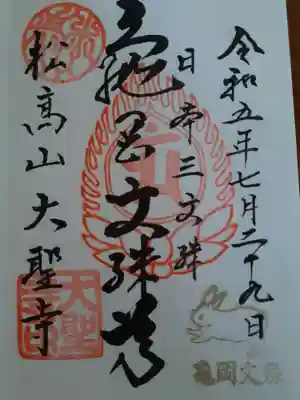 令和五年七月二十九日
日本三文殊
龜岡文殊
松高山大聖寺
亀岡文殊